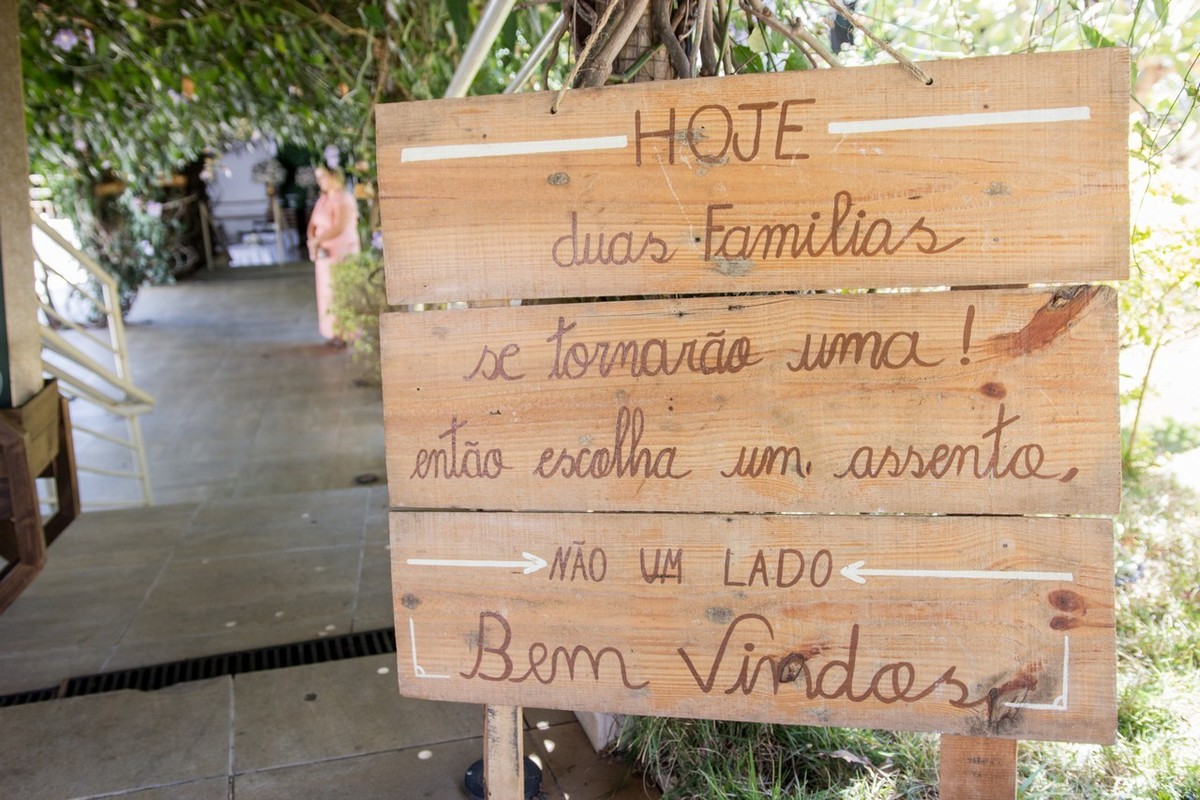 HOJE
duas Familias
se tornarão uma!
então escolha um. assento,
NÃO UM LADO
Bem Vindos